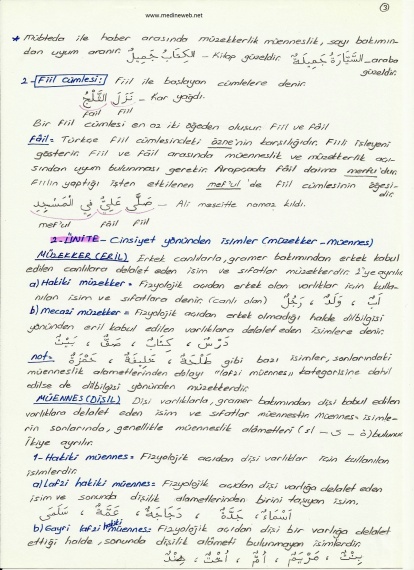 www.medineweb.net
3
* Mübteda ile haber arasında müzekkerlik müenneslik, sayı bakımın-
dan uyum aranır. اَلْكِتَابُ جَمِيلٌ - Kitap güzeldir. اَلسَّيَّارَةُ جَمِيلَةٌ - araba
güzeldir.
2 - Fiil Cümlesi: Fiil ile başlayan cümlelere denir.
نَزَلَ الثَّلْجُ - Kar yağdı.
Fail Fiil
Bir Fiil cümlesi en az iki öğeden oluşur. Fiil ve Fâil
Fâil = Türkçe Fiil cümlesindeki özne'nin karşılığıdır. Fiili işleyeni
gösterir. Fiil ve Fâil arasında müenneslik ve müzekkerlik açı-
sından uyum bulunması gerekir. Arapçada Fâil daima merfu'dur.
Fiilin yaptığı işten etkilenen mef'ul 'de Fiil cümlesinin öğesi-
dir.
صَلَّى عَلِيٌّ فِي الْمَسْجِدِ - Ali mescitte namaz kıldı.
mef'ul Fâil Fiil
2. ÜNİTE - Cinsiyet yönünden isimler (müzekker - müennes)
MÜZEKKER (ERİL) Erkek canlılarla, gramer bakımından erkek kabul
edilen canlılara delalet eden isim ve sıfatlar müzekkerdir. 2'ye ayrılır.
a) Hakiki müzekker = Fizyolojik açıdan erkek olan varlıklar için kulla-
nılan isim ve sıfatlara denir. (canlı olan) أَبٌ ، وَلَدٌ ، رَجُلٌ
b) mecazi müzekker = Fizyolojik açıdan erkek olmadığı halde dilbilgisi
yönünden eril kabul edilen varlıklara delalet eden isimlere denir.
دَرْسٌ ، كِتَابٌ ، صَفٌّ ، بَيْتٌ
not = طَلْحَةُ ، خَلِيفَةٌ ، حَمْزَةُ gibi bazı isimler, sonlarındaki
müenneslik alametlerinden dolayı "lafzi müennes" kategorisine dahil
edilse de dilbilgisi yönünden müzekkerdir.
MÜENNES (DİŞİL) Dişi varlıklarla, gramer bakımından dişi kabul edilen
varlıklara delalet eden isim ve sıfatlar müennestir. Müennes isimle-
rin sonlarında, genellikle müenneslik alâmetleri (اء - ى - ة) bulunur.
İkiye ayrılır.
1- Hakiki müennes = Fizyolojik açıdan dişi varlıklar için kullanılan
isimlerdir.
a) Lafzi hakiki müennes: Fizyolojik açıdan dişi varlığa delalet eden
isim ve sonunda dişilik alametlerinden birini taşıyan isim.
أَسْمَاءُ ، جَدَّةٌ ، دَجَاجَةٌ ، عَمَّةٌ ، سَلْمَى
b) Gayri lafzi hakiki müennes: Fizyolojik açıdan dişi bir varlığa delalet
ettiği halde, sonunda dişilik alâmeti bulunmayan isimlerdir.
بِنْتٌ ، مَرْيَمُ ، أُمٌّ ، أُخْتٌ ، هِنْدٌ